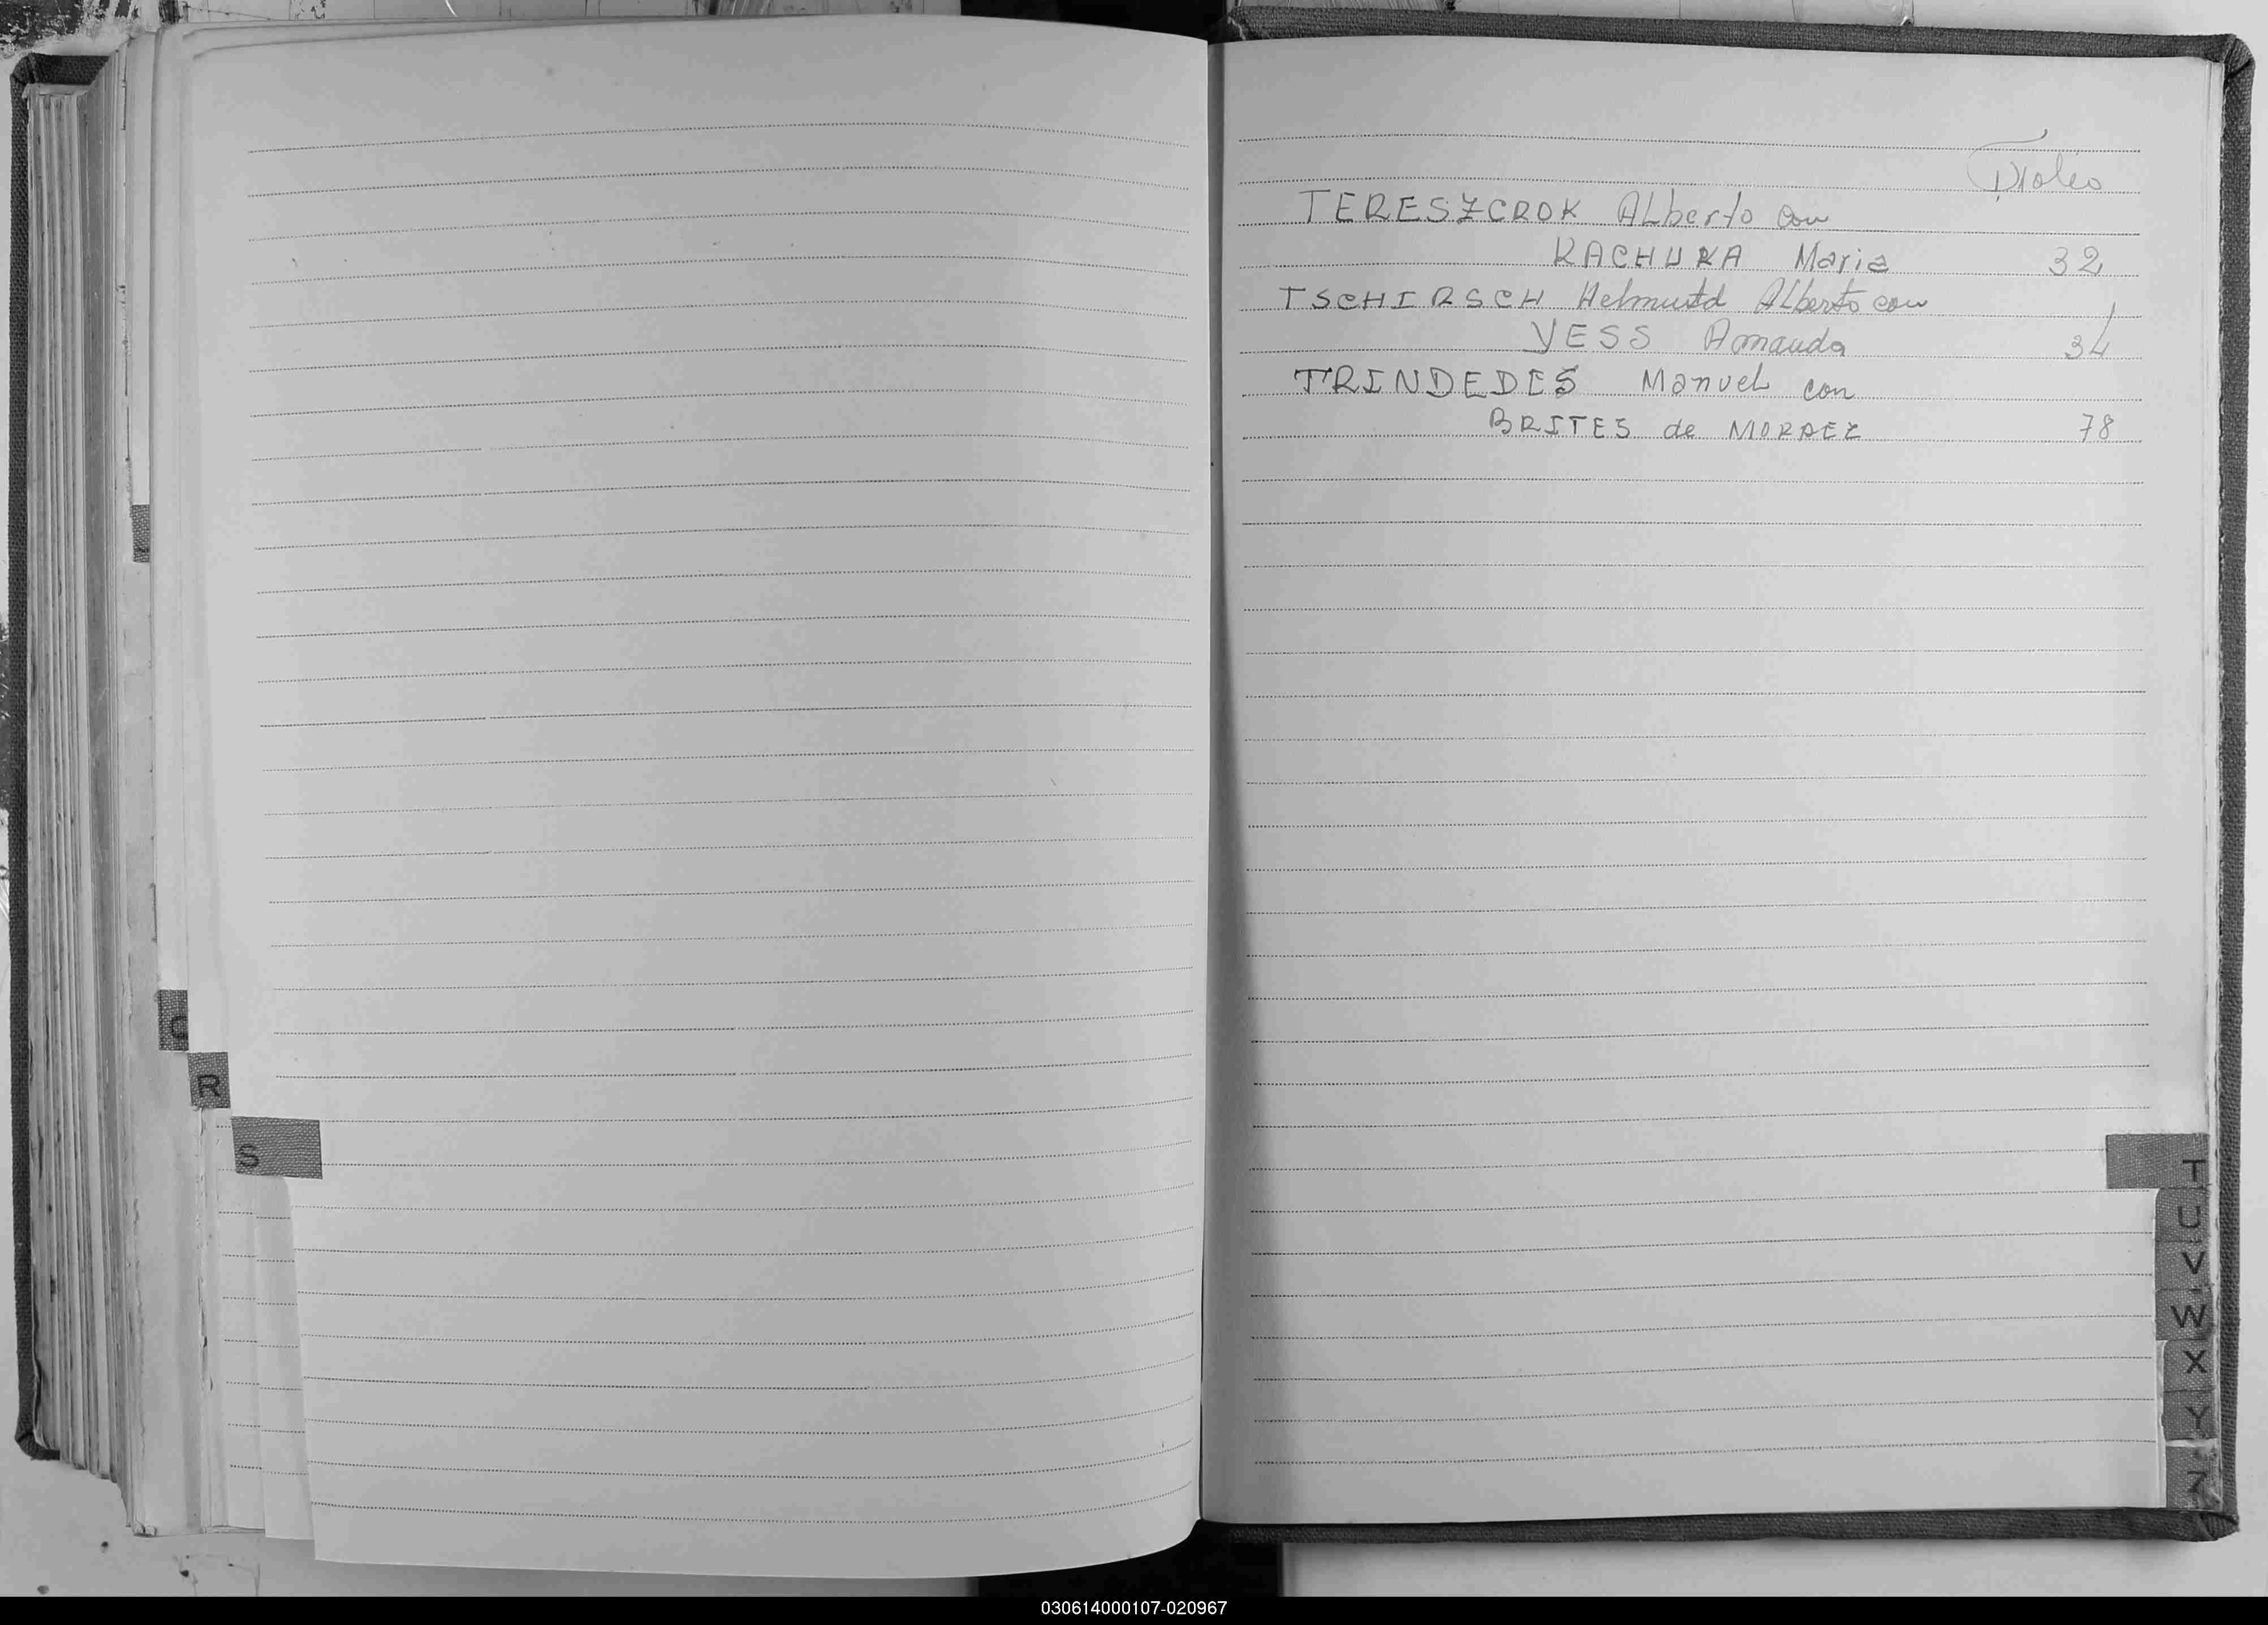 Folio
TERESZCROK ALberto con
KACHUKA Maria 32
TSCHIRSCH Helmutd ALberto con
YESS Amanda 34
TRINDEDES Manuel con
BRITES de MORAEZ 78
C
R
S
T
U
V
W
X
Y
Z
030614000107-020967